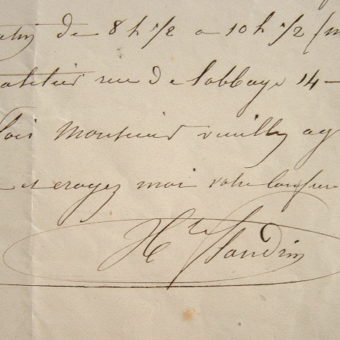 de 8 h 1/2 a 10 h 1/2
rue de l'abbaye 14 —
Monsieur veuillez ag
et croyez moi votre
Hte Flandrin